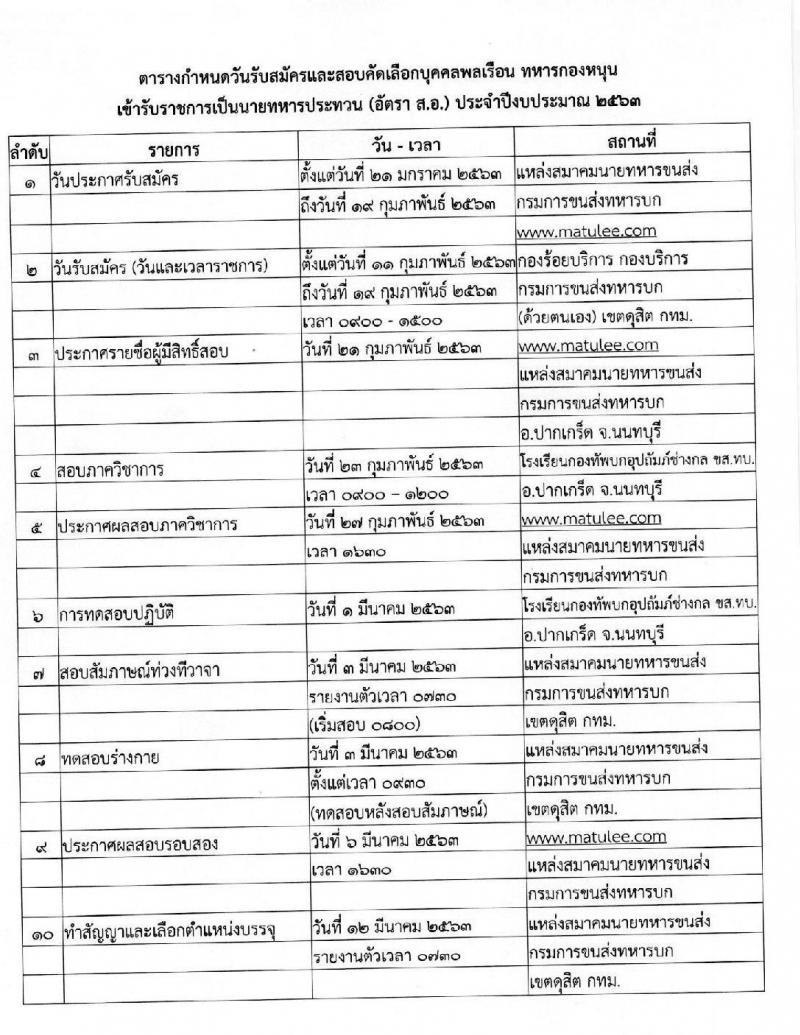 ตารางกำหนดวันรับสมัครและสอบคัดเลือกบุคคลพลเรือน ทหารกองหนุน
เข้ารับราชการเป็นนายทหารประทวน (อัตรา ส.อ.) ประจำปีงบประมาณ ๒๕๖๓
ลำดับ รายการ วัน - เวลา สถานที่
๑ วันประกาศรับสมัคร ตั้งแต่วันที่ ๒๑ มกราคม ๒๕๖๓ แหล่งสมาคมนายทหารขนส่ง
ถึงวันที่ ๑๙ กุมภาพันธ์ ๒๕๖๓ กรมการขนส่งทหารบก
www.matulee.com
๒ วันรับสมัคร (วันและเวลาราชการ) ตั้งแต่วันที่ ๑๑ กุมภาพันธ์ ๒๕๖๓ กองร้อยบริการ กองบริการ
ถึงวันที่ ๑๙ กุมภาพันธ์ ๒๕๖๓ กรมการขนส่งทหารบก
เวลา ๐๙๐๐ - ๑๕๐๐ (ด้วยตนเอง) เขตดุสิต กทม.
๓ ประกาศรายชื่อผู้มีสิทธิ์สอบ วันที่ ๒๑ กุมภาพันธ์ ๒๕๖๓ www.matulee.com
แหล่งสมาคมนายทหารขนส่ง
กรมการขนส่งทหารบก
อ.ปากเกร็ด จ.นนทบุรี
๔ สอบภาควิชาการ วันที่ ๒๓ กุมภาพันธ์ ๒๕๖๓ โรงเรียนกองทัพบกอุปถัมภ์ช่างกล ขส.ทบ.
เวลา ๐๙๐๐ – ๑๒๐๐ อ.ปากเกร็ด จ.นนทบุรี
๕ ประกาศผลสอบภาควิชาการ วันที่ ๒๗ กุมภาพันธ์ ๒๕๖๓ www.matulee.com
เวลา ๑๖๓๐ แหล่งสมาคมนายทหารขนส่ง
กรมการขนส่งทหารบก
๖ การทดสอบปฏิบัติ วันที่ ๑ มีนาคม ๒๕๖๓ โรงเรียนกองทัพบกอุปถัมภ์ช่างกล ขส.ทบ.
อ.ปากเกร็ด จ.นนทบุรี
๗ สอบสัมภาษณ์ท่วงทีวาจา วันที่ ๓ มีนาคม ๒๕๖๓ แหล่งสมาคมนายทหารขนส่ง
รายงานตัวเวลา ๐๗๓๐ กรมการขนส่งทหารบก
(เริ่มสอบ ๐๘๐๐) เขตดุสิต กทม.
๘ ทดสอบร่างกาย วันที่ ๓ มีนาคม ๒๕๖๓ แหล่งสมาคมนายทหารขนส่ง
ตั้งแต่เวลา ๐๙๓๐ กรมการขนส่งทหารบก
(ทดสอบหลังสอบสัมภาษณ์) เขตดุสิต กทม.
๙ ประกาศผลสอบรอบสอง วันที่ ๖ มีนาคม ๒๕๖๓ www.matulee.com
เวลา ๑๖๓๐ แหล่งสมาคมนายทหารขนส่ง
กรมการขนส่งทหารบก
๑๐ ทำสัญญาและเลือกตำแหน่งบรรจุ วันที่ ๑๒ มีนาคม ๒๕๖๓ แหล่งสมาคมนายทหารขนส่ง
รายงานตัวเวลา ๐๗๓๐ กรมการขนส่งทหารบก
เขตดุสิต กทม.